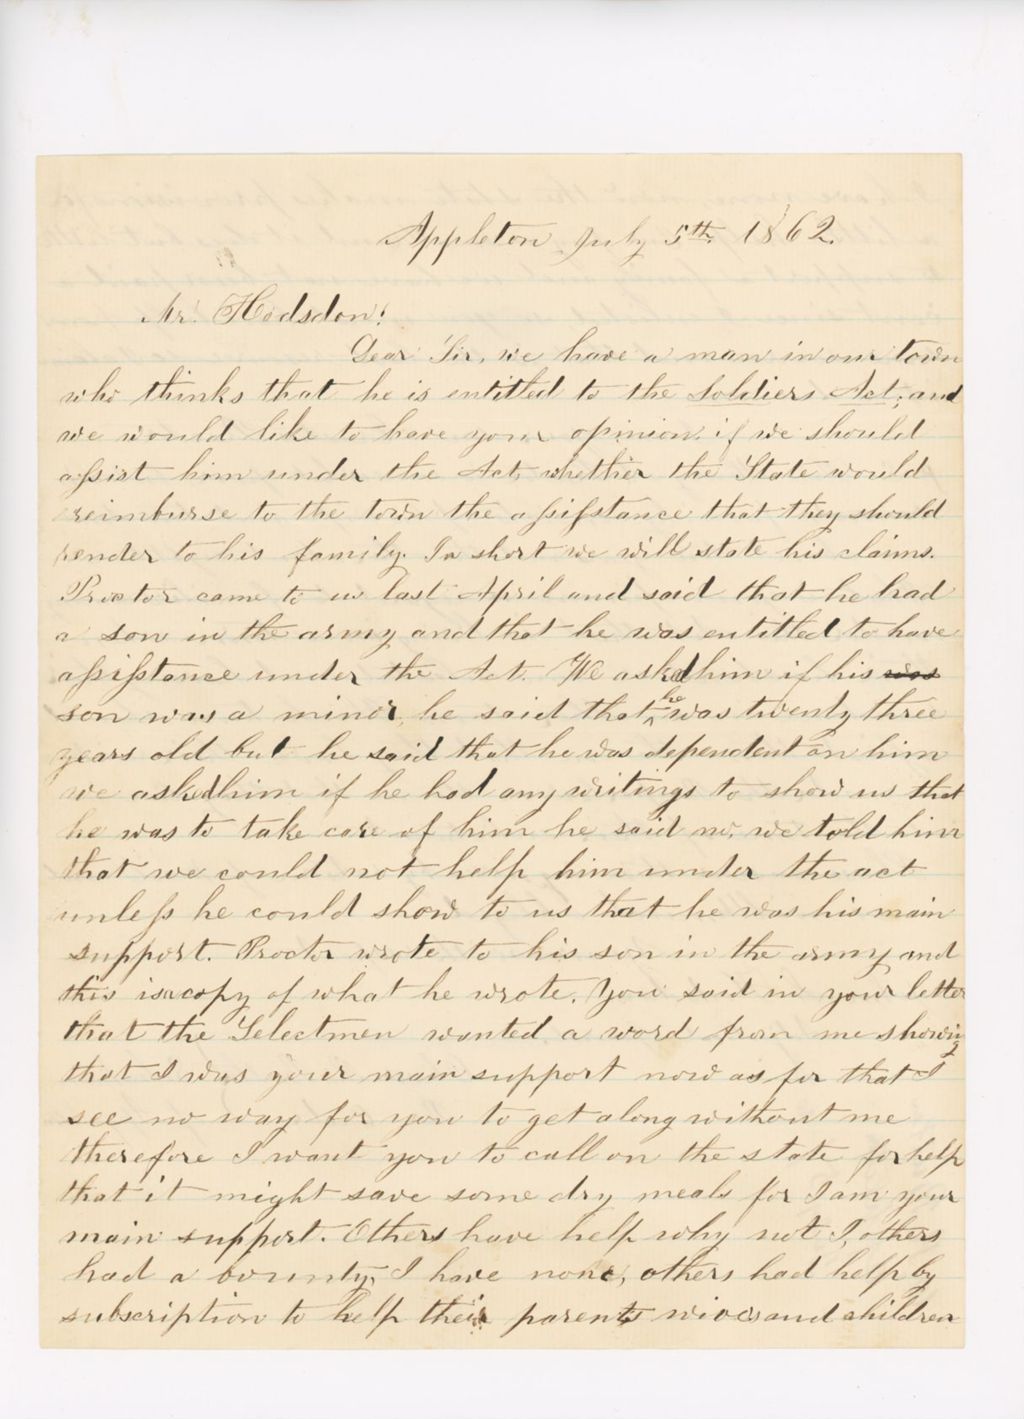 Appleton July 5th. 1862.
Mr. Hodsdon!
Dear Sir, we have a man in our town
who thinks that he is entitled to the Soldiers Act; and
we would like to have your opinion. if we should
assist him under the Act, whether the State would
reimburse to the town the assistance that they should
render to his family. In short we will state his claims.
Proctor came to us last April and said that he had
a son in the army and that he was entitled to have
assistance under the Act. We asked him if his was
son was a minor, he said that he was twenty three
years old but he said that he was dependent on him
we asked him if he had any writings to show us that
he was to take care of him he said no, we told him
that we could not help him under the act
unless he could show to us that he was his main
support. Proctor wrote to his son in the army and
this is a copy of what he wrote. You said in your letter
that the Selectmen wanted a word from me showing
that I was your main support now as for that I
see no way for you to get along without me
therefore I want you to call on the state for help
that it might save some dry meals for I am your
main support. Others have help why not I, others
had a bounty, I have none, others had help by
subscription to help their parents wives and children